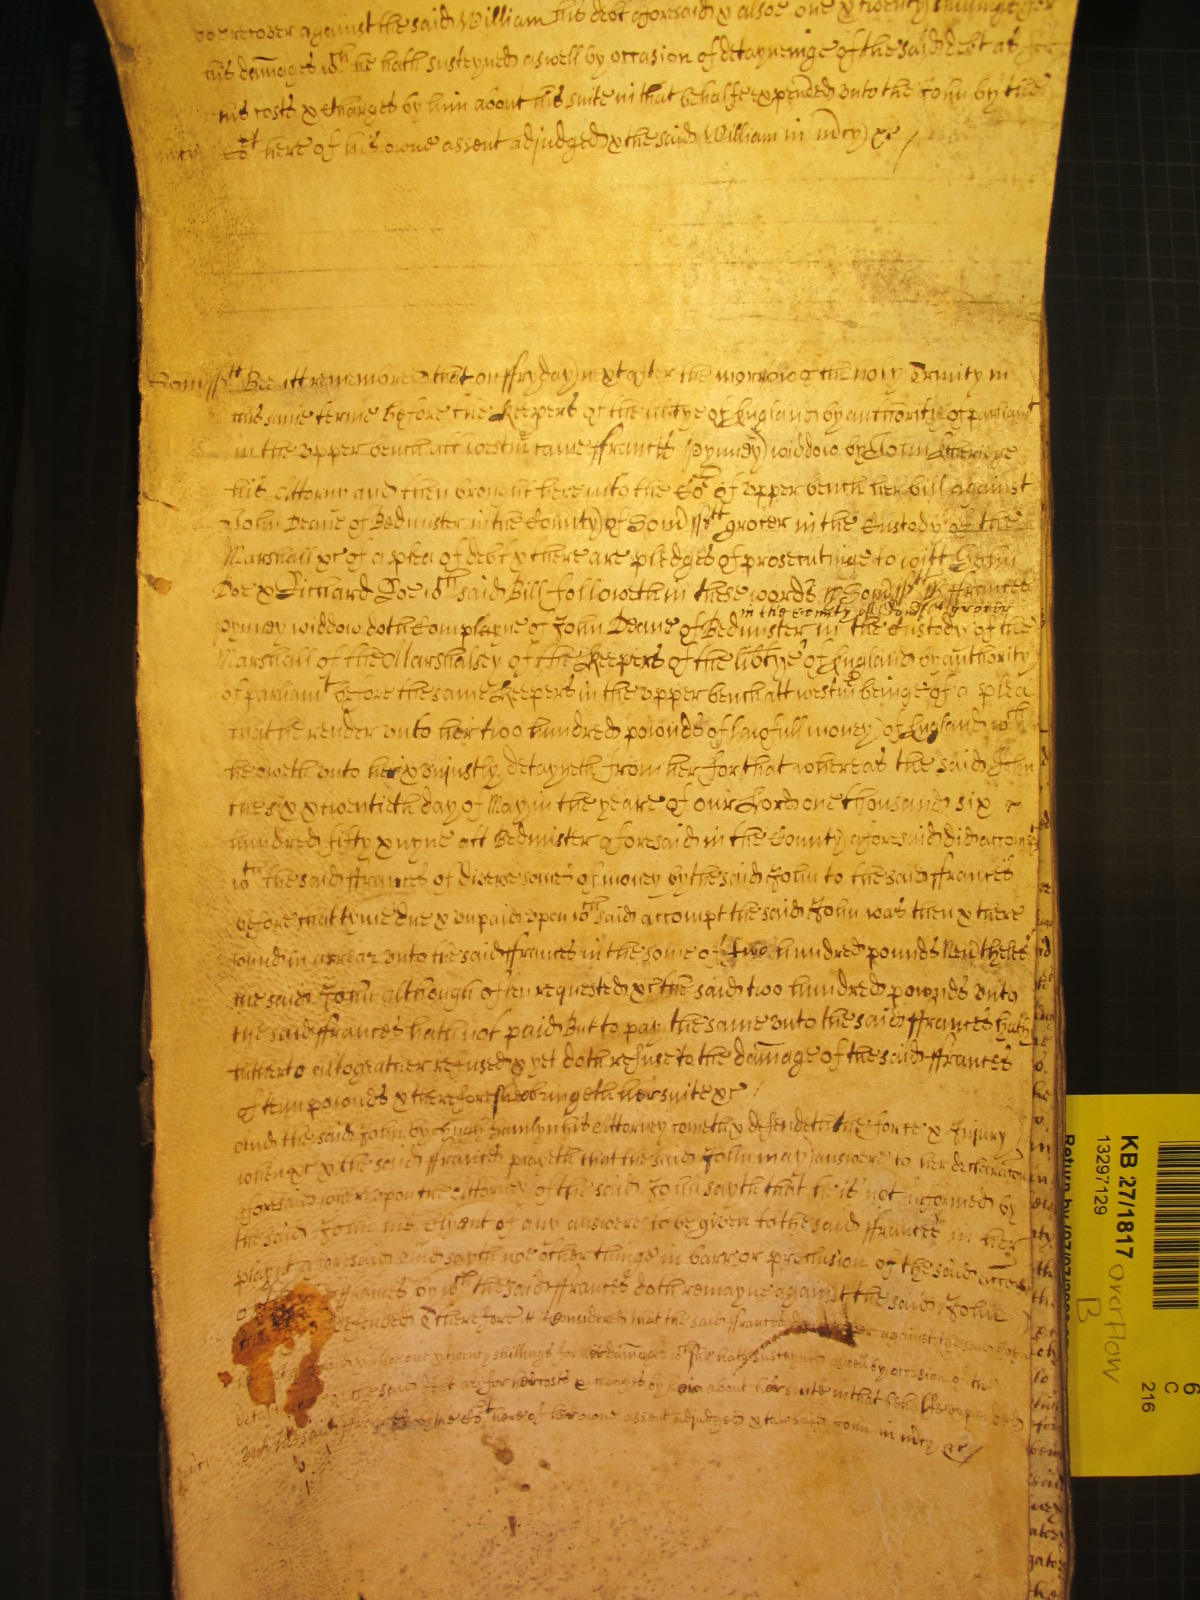 doe recover against the said William his debt aforesaid & alsoe one & twenty shillings for
his damages wch he hath susteyned aswell by occasion of detayneinge of the said debt as for
his costs & Charges by him about his suite in that behalfe expended unto the John by the
mcy Cot here of his owne assent adjudged & the said William in mcy &c /
Somsstt Bee itt remembred that on ffryday next after the morrow of the holy Trinity in
this same terme before the Keepers of the libtye of England by authority of parliamt
in the upper bench att westm came ffrances Pynney widdow by John
his Attorny and then brought here into the Cot of upper bench her bill against
John Deane of Bedmister in the County of Somsstt grocer in the Custody of the
Marshall &c of a plea of debt & there are pledges of prosecutinge to witt John
Doe & Richard Roe wch said Bill followeth in these words ss Somsstt ss ffrances
in the County of Somsstt grocer
pynney widdow doth Complayne of John Deane of Bedmister in the Custody of the
Marshall of the Marshalsey of the Keepers of the libtye of England by authority
of parliamt before the same Keepers in the upper bench att westm beinge of a plea
that he render unto her two hundred pownds of lawfull money of England wch
he oweth unto her & unjustly detayneth from her for that whereas the said John
the six & twentieth day of May in the yeare of our Lord one thousand six
hundred fifty & nyne att Bedmister aforesaid in the County aforesaid did accompt
wth the said ffrances of diverse somes of money by the said John to the said ffrances
before that tyme due & unpaid upon wch said accompt the said John was then & there
found in arrear unto the said ffrances in the some of two hundred pounds Nevtheles
the said John although often requested &c the said two hundred pownds unto
the said ffrances hath not paid But to pay the same unto the said ffrances hath
hitherto altogeather refused & yet doth refuse to the damage of the said ffrances
of tenn pownds & therefore shee bringeth her suite &c /
And the said John by Hugh Hamlyn his Attorney cometh & defendeth the force & Injury
when &c & the said ffrances prayeth that the said John may answere to her declaracon
aforesaid whereupon the Attorney of the said John sayth that he is not informed by
the said John his Clyent of any answere to be given to the said ffrances in her
playnt aforesaid And sayth noe other thinge in barr or preclusion of the said accon
of ffrances by wch the said ffrances doth remayne against the said John
defended Therefore it is Considered that the said ffrances doe recover against the said John
& alsoe one & twenty shillings for her damages wch she hath susteyned aswell by occasion of the
detayn the said debt as for her costs & charges by her about her suite in that behalfe expended
unto the said ffrances by the Cot here of her owne assent adjudged & the said John in mcy &c /
KB 27/1817
13297129
overflow
B
6
C
216